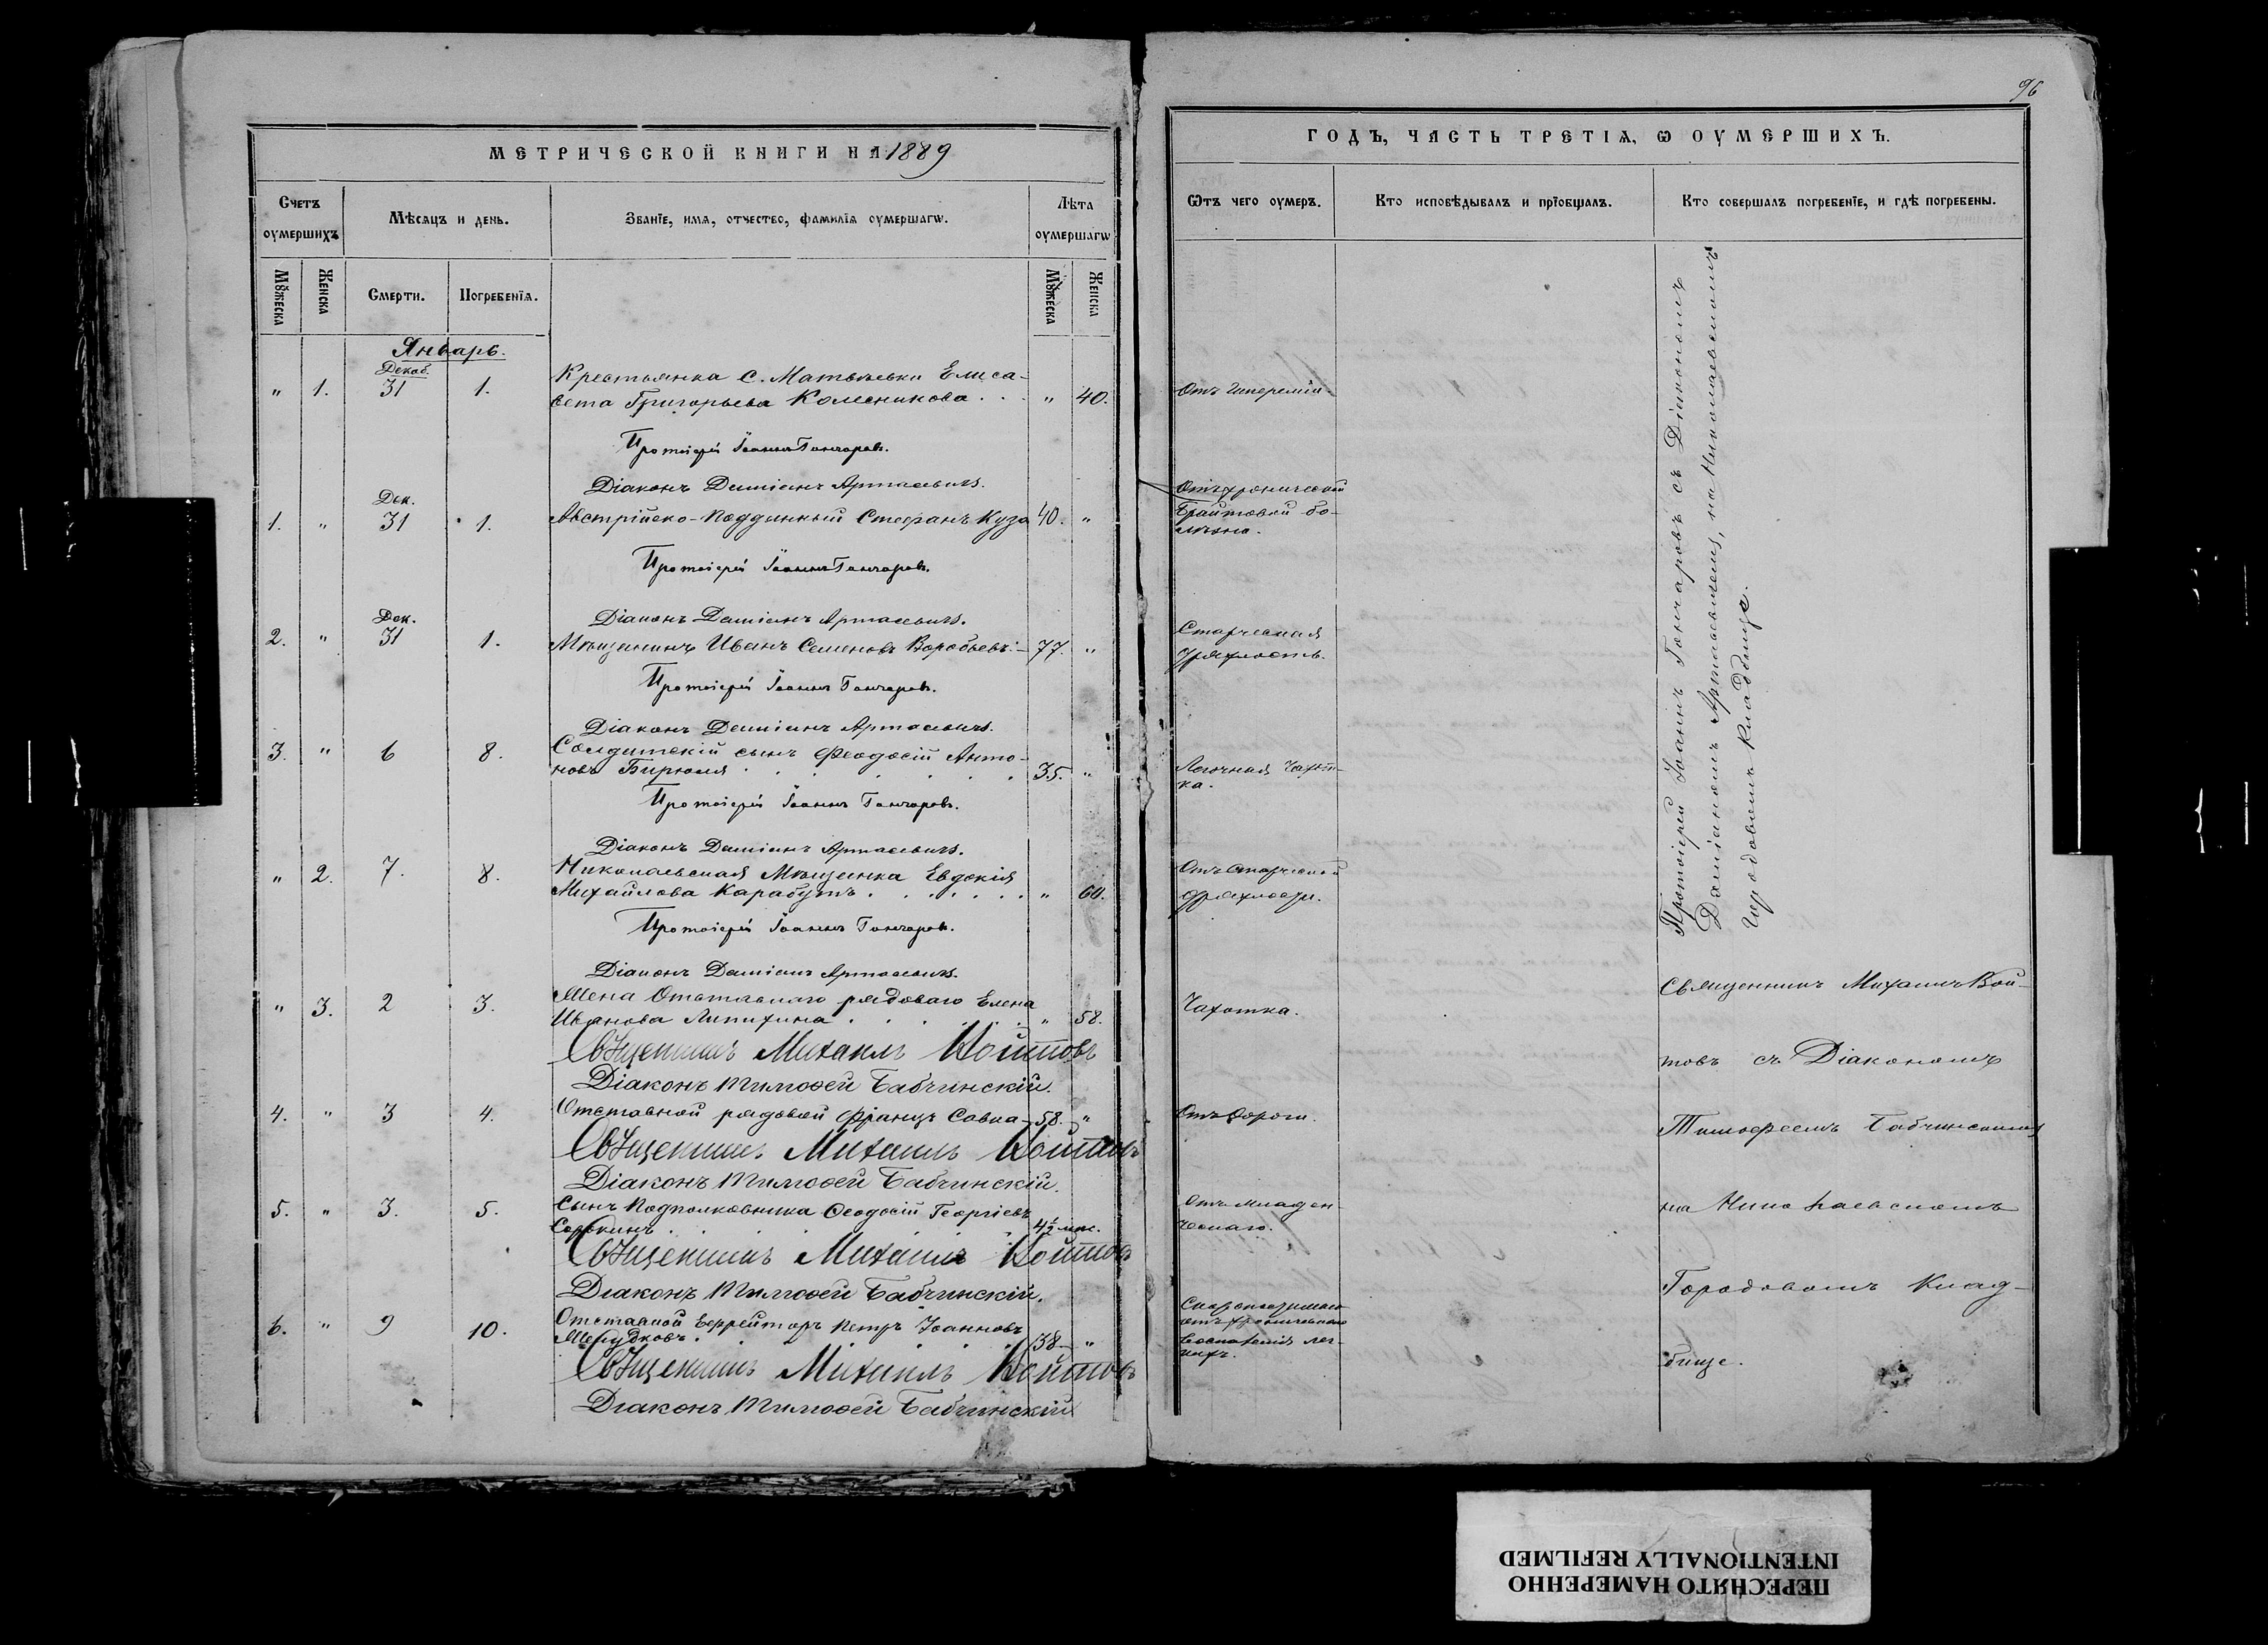 96
МЕТРИЧЕСКОЙ КНИГИ НА 1889
ГОДЪ, ЧАСТЬ ТРЕТІѦ, Ѡ ОУМЕРШИХЪ.
Счетъ оумершихъ
Мѣсяцъ и день.
Званїе, имѧ, отчество, фамилїѧ оумершагѡ.
Лѣта оумершагѡ
Ѿтъ чего оумеръ.
Кто исповѣдывалъ и прїобщалъ.
Кто совершалъ погребенїе, и гдѣ погребены.
Мꙋжеска
Женска
Смерти.
Погребенїѧ.
Мꙋжеска
Женска
Январь.
Декаб.
" 1. 31 1. Крестьянка с. Матвѣевки Елиса-
вета Григорьева Колесникова . . . " 40.
Протоіерей Іоаннъ Гончаровъ.
Діаконъ Даміанъ Артасевичъ.
Дек.
1. " 31 1. Австрійско-подданный Стефанъ Куза 40. "
Отъ хронической
Брайтовой бо-
лѣзни.
Протоіерей Іоаннъ Гончаровъ.
Діаконъ Даміанъ Артасевичъ.
Дек.
2. " 31 1. Мѣщанинъ Иванъ Семеновъ Воробьевъ 77. "
Старческая
дряхлость.
Протоіерей Іоаннъ Гончаровъ.
Діаконъ Даміанъ Артасевичъ.
3. " 6 8. Солдатскій сынъ Феодосій Анто-
новъ Бирюля . . . 35. "
Легочная чахот-
ка.
Протоіерей Іоаннъ Гончаровъ.
Діаконъ Даміанъ Артасевичъ.
" 2. 7. 8. Николаевская Мѣщанка Евдокія
Михайлова Карабутъ . . . " 60.
Отъ старческой
дряхлости.
Протоіерей Іоаннъ Гончаровъ.
Діаконъ Даміанъ Артасевичъ.
Протоіерей Іоаннъ Гончаровъ съ Діакономъ
Даміаномъ Артасевичемъ, на Николаевскомъ
Городовомъ Кладбище.
" 3. 2 3. Жена Отставнаго рядоваго Елена
Иванова Липихина . . . " 58.
Чахотка.
Священникъ Михаилъ Войтовъ
Діаконъ Тимофей Бабчинскій.
4. " 3 4. Отставной рядовой Францъ Совка 58. "
Священникъ Михаилъ Войтовъ
Діаконъ Тимофей Бабчинскій.
5. " 3. 5. Сынъ Подполковника Феодосій Георгіевъ
Сорокинъ . . . 4½ мѣс.
Отъ младен
ческаго.
Священникъ Михаилъ Войтовъ
Діаконъ Тимофей Бабчинскій.
6. " 9 10. Отставной Ефрейторъ Петръ Іоанновъ
38 "
отъ хроническаго
воспаленія лег-
кихъ.
Священникъ Михаилъ Войтовъ
Діаконъ Тимофей Бабчинскій
Священникъ Михаилъ Вой-
товъ съ Діакономъ
Тимофеемъ Бабчинскимъ
на Николаевскомъ
Городовомъ Клад-
бище.
ПЕРЕСНЯТО НАМЕРЕННО
INTENTIONALLY REFILMED